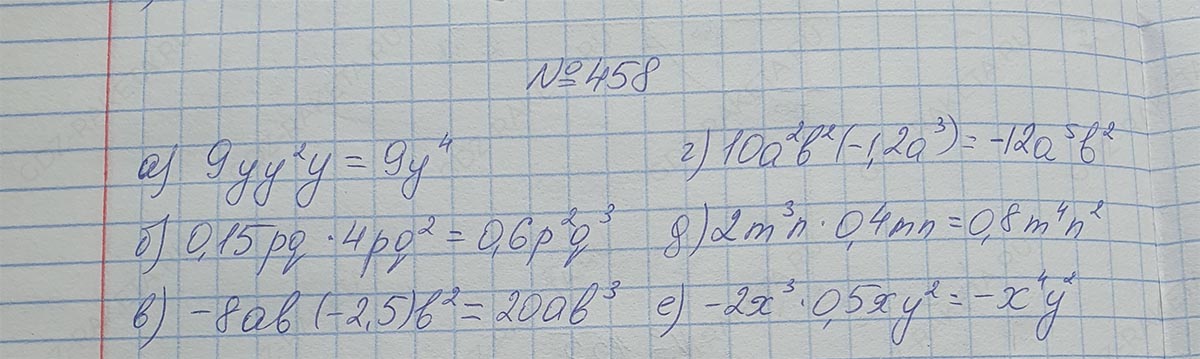 №458
а) 9yy²y = 9y⁴
б) 0,15pq · 4pq² = 0,6p²q³
в) -8ab (-2,5)b² = 20ab³
г) 10a²b² (-1,2a³) = -12a⁵b²
д) 2m³n · 0,4mn = 0,8m⁴n²
е) -2x³ · 0,5xy² = -x⁴y²